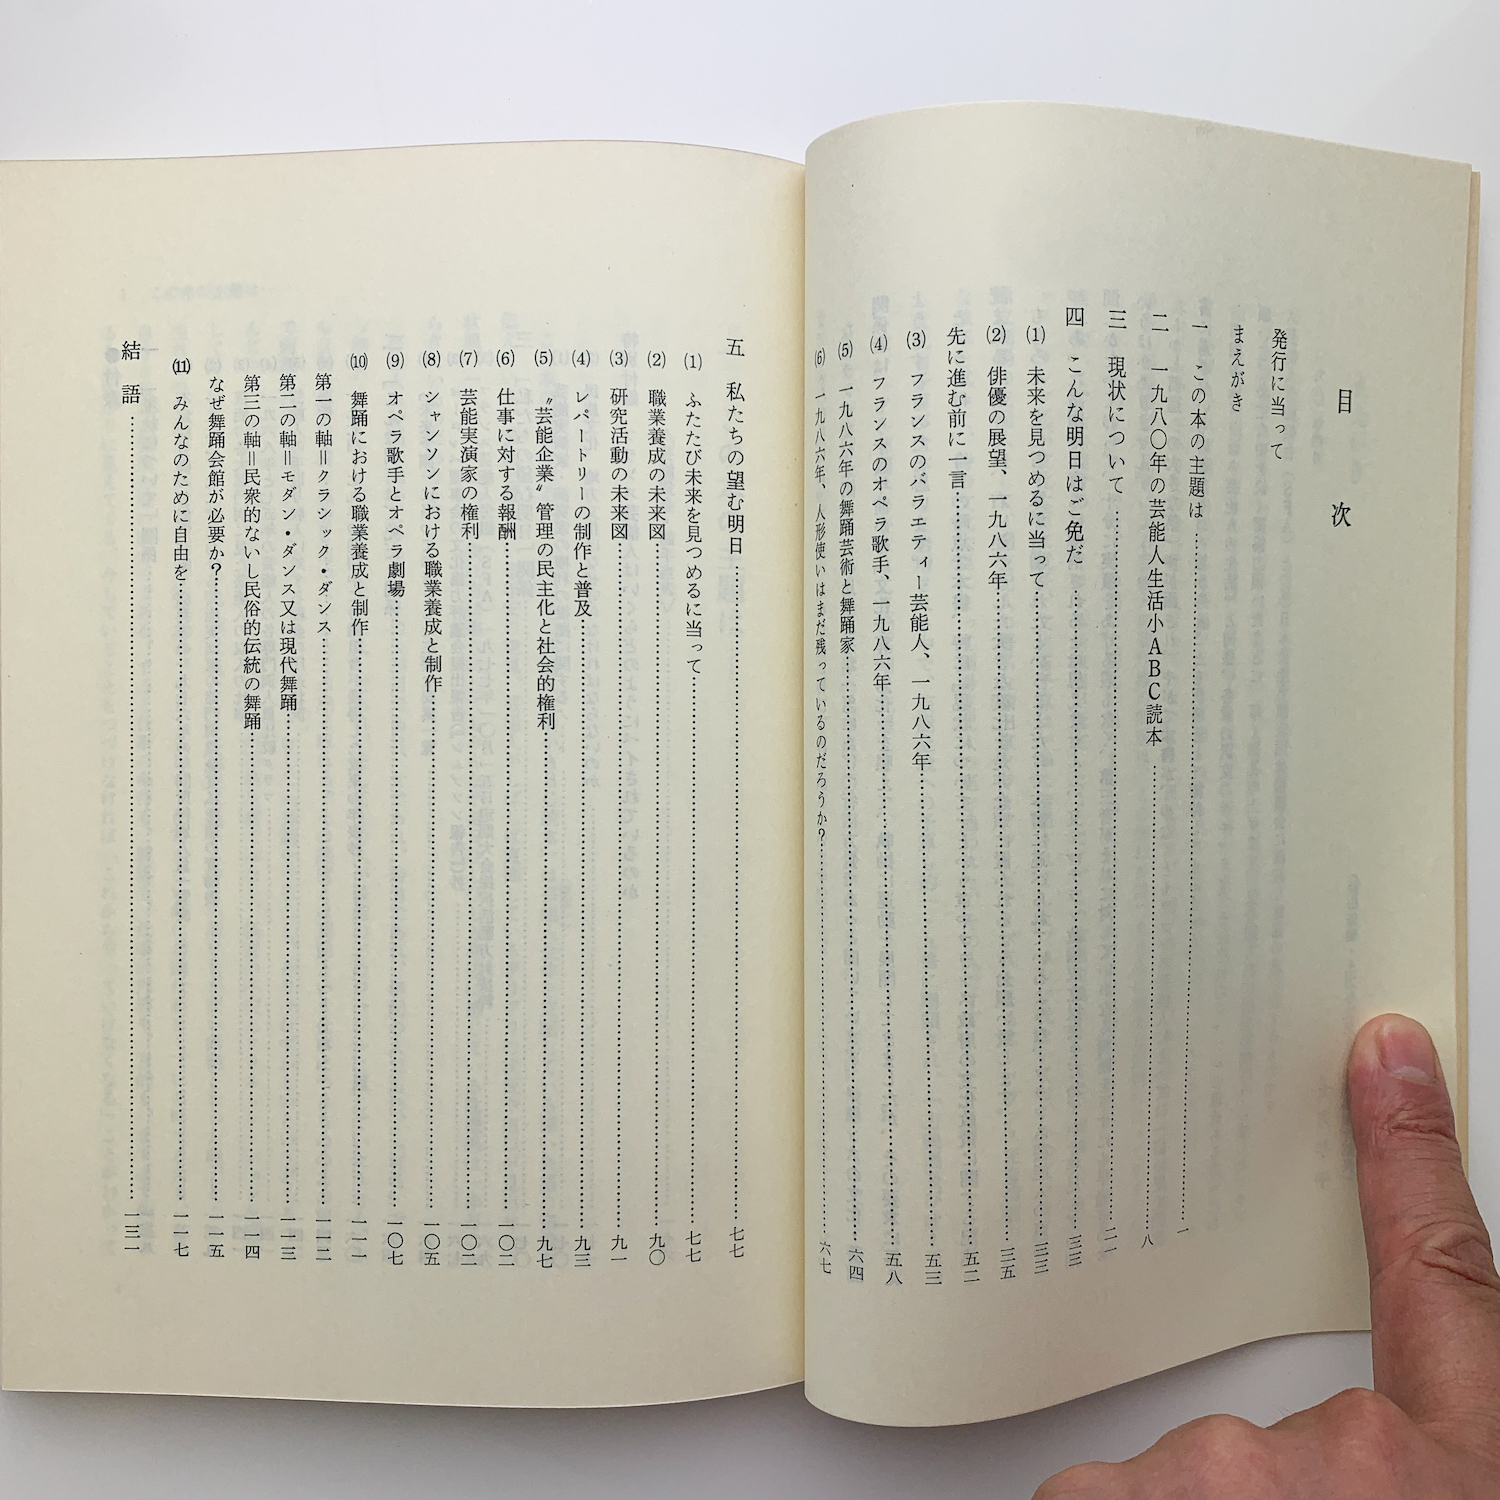 目次
発行に当って
まえがき
一 この本の主題は…………一
二 一九八〇年の芸能人生活小ABC読本…………八
三 現状について…………二一
四 こんな明日はご免だ…………三三
(1) 未来を見つめるに当って…………三三
(2) 俳優の展望、一九八六年…………三五
先に進む前に一言…………五二
(3) フランスのバラエティー芸能人、一九八六年…………五三
(4) フランスのオペラ歌手、一九八六年…………五八
(5) 一九八六年の舞踊芸術と舞踊家…………六四
(6) 一九八六年、人形使いはまだ残っているのだろうか?…………六七
五 私たちの望む明日…………七七
(1) ふたたび未来を見つめるに当って…………七七
(2) 職業養成の未来図…………九〇
(3) 研究活動の未来図…………九一
(4) レパートリーの制作と普及…………九三
(5) 〝芸能企業〟管理の民主化と社会的権利…………九七
(6) 仕事に対する報酬…………一〇二
(7) 芸能実演家の権利…………一〇二
(8) シャンソンにおける職業養成と制作…………一〇五
(9) オペラ歌手とオペラ劇場…………一〇七
(10) 舞踊における職業養成と制作…………一一一
第一の軸=クラシック・ダンス…………一一二
第二の軸=モダン・ダンス又は現代舞踊…………一一三
第三の軸=民衆的ないし民俗的伝統の舞踊…………一一四
なぜ舞踊会館が必要か?…………一一五
(11) みんなのために自由を…………一一七
結語…………一三一